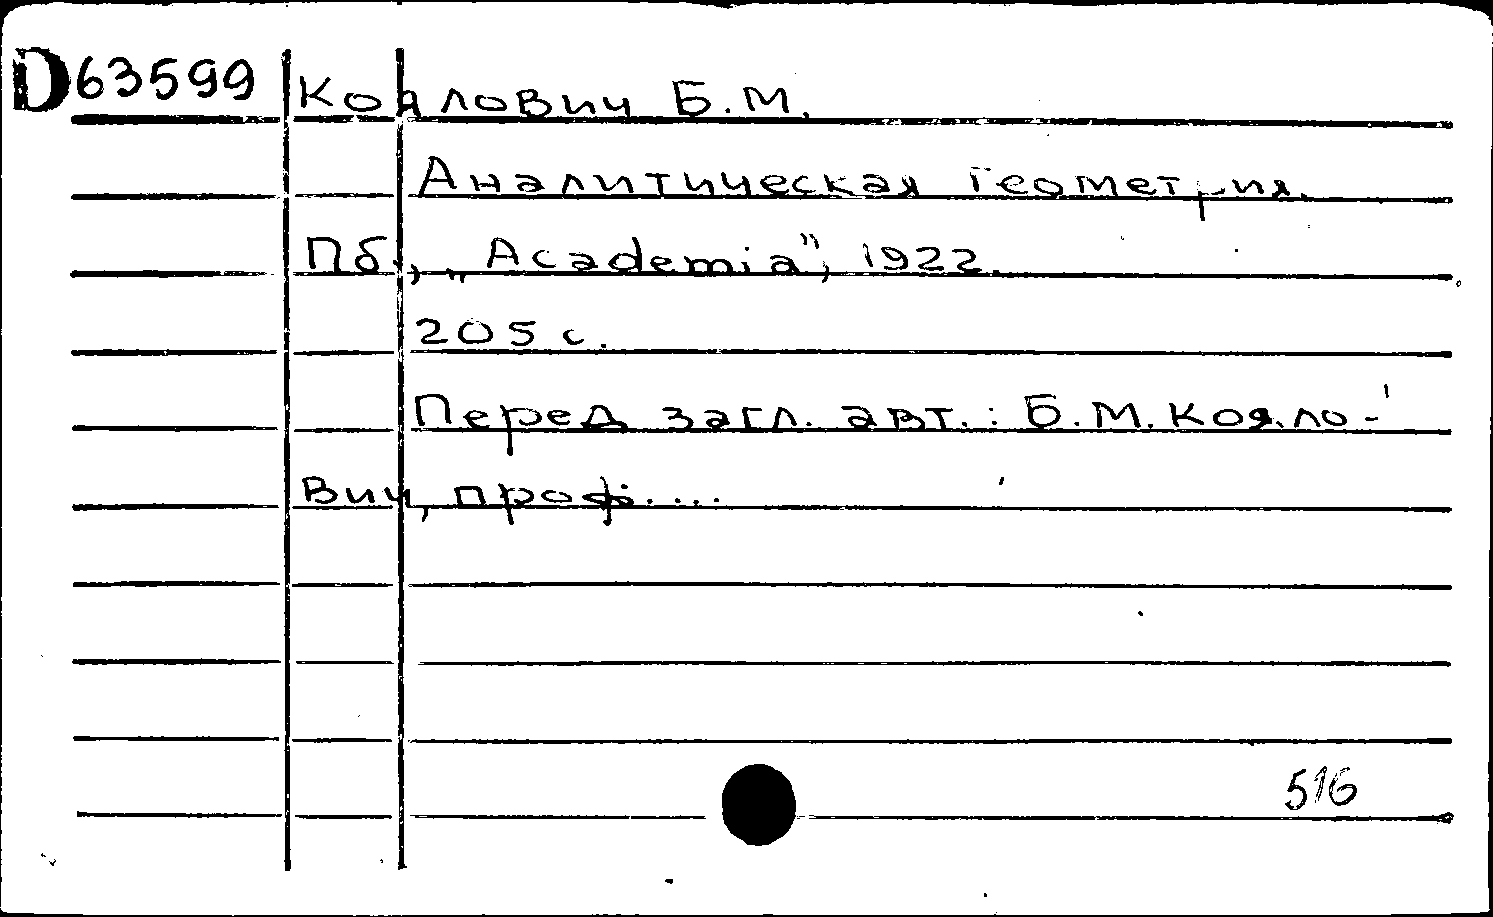 D63599 Коялович Б.М.
Аналитическая геометрия.
Пб., „Academia”, 1922.
205 с.
Перед загл. авт.: Б.М.Кояло-
вич, проф....
516